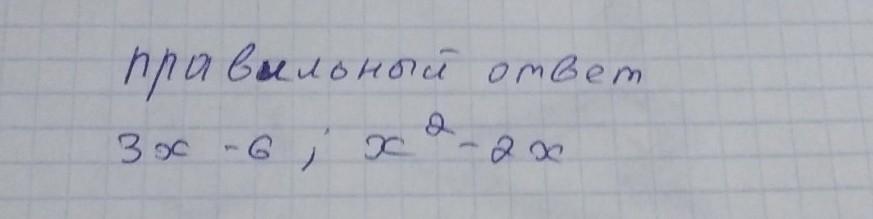 правильный ответ
3x - 6 ; x² - 2x